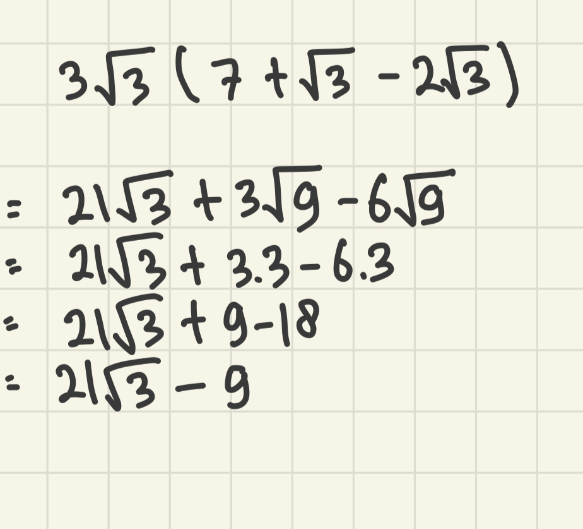 3√3 ( 7 + √3 - 2√3 )
= 21√3 + 3√9 - 6√9
= 21√3 + 3.3 - 6.3
= 21√3 + 9 - 18
= 21√3 - 9